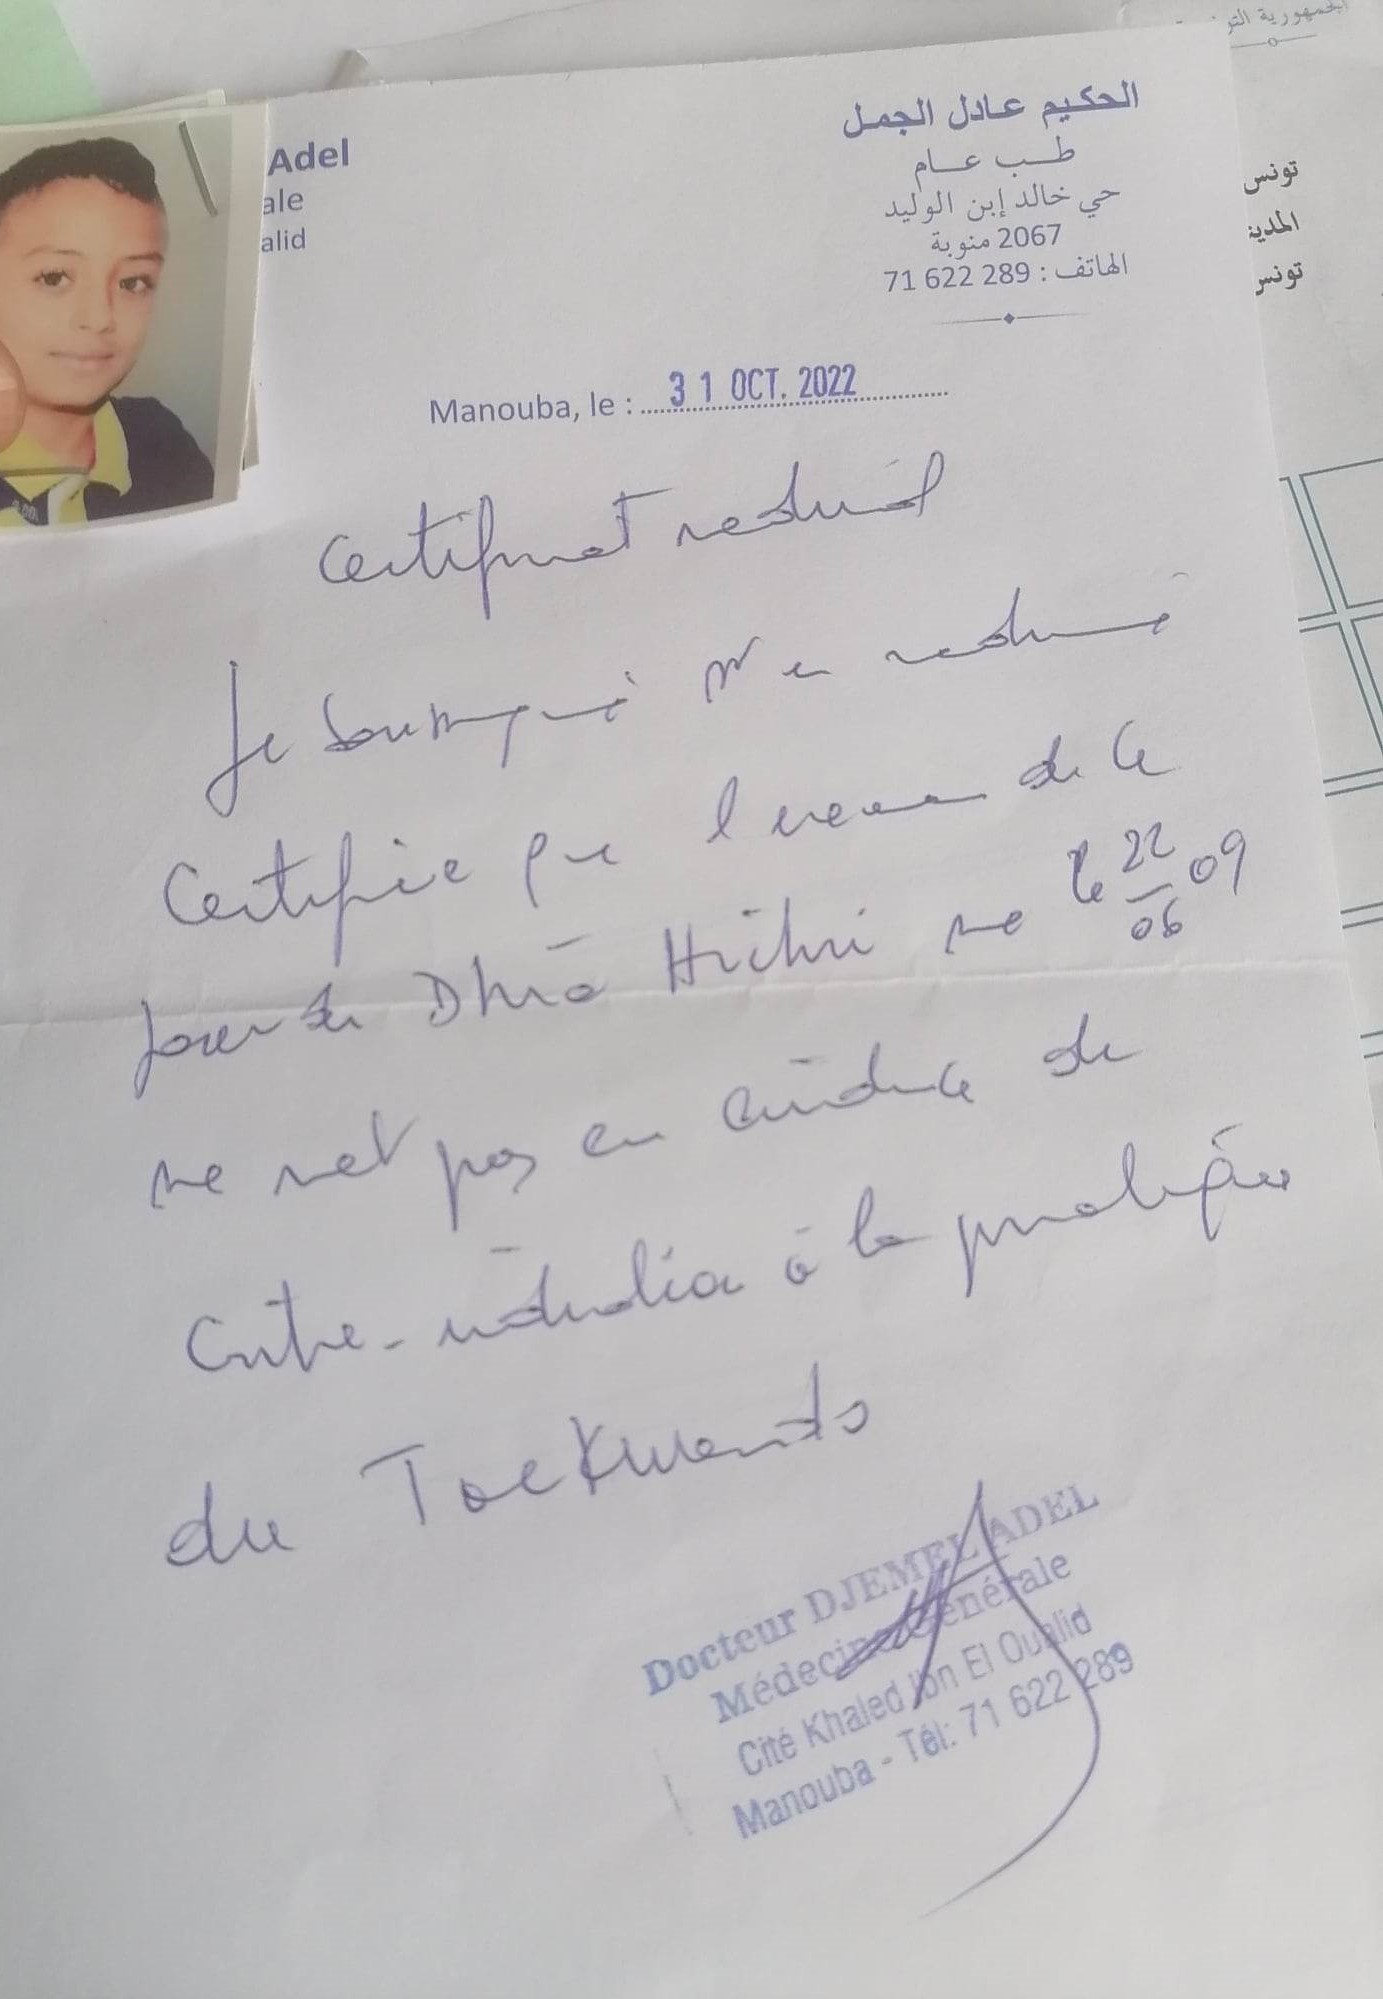 Adel
ale
alid
الحكيم عادل الجمل
طب عام
حي خالد إبن الوليد
2067 منوبة
الهاتف : 71 622 289
الجمهورية
تونس
تونس
Manouba, le : 31 OCT. 2022
Certificat medical
Je soussigné Mr en medecine
Certifie que l'examen de ce
jour de Dhia né le 22/06 09
ne met pas en evidence de
Contre-indication à la pratique
du Taekwondo
Docteur DJEMEL ADEL
Médecine Générale
Cité Khaled Ibn El Oualid
Manouba - Tél: 71 622 289